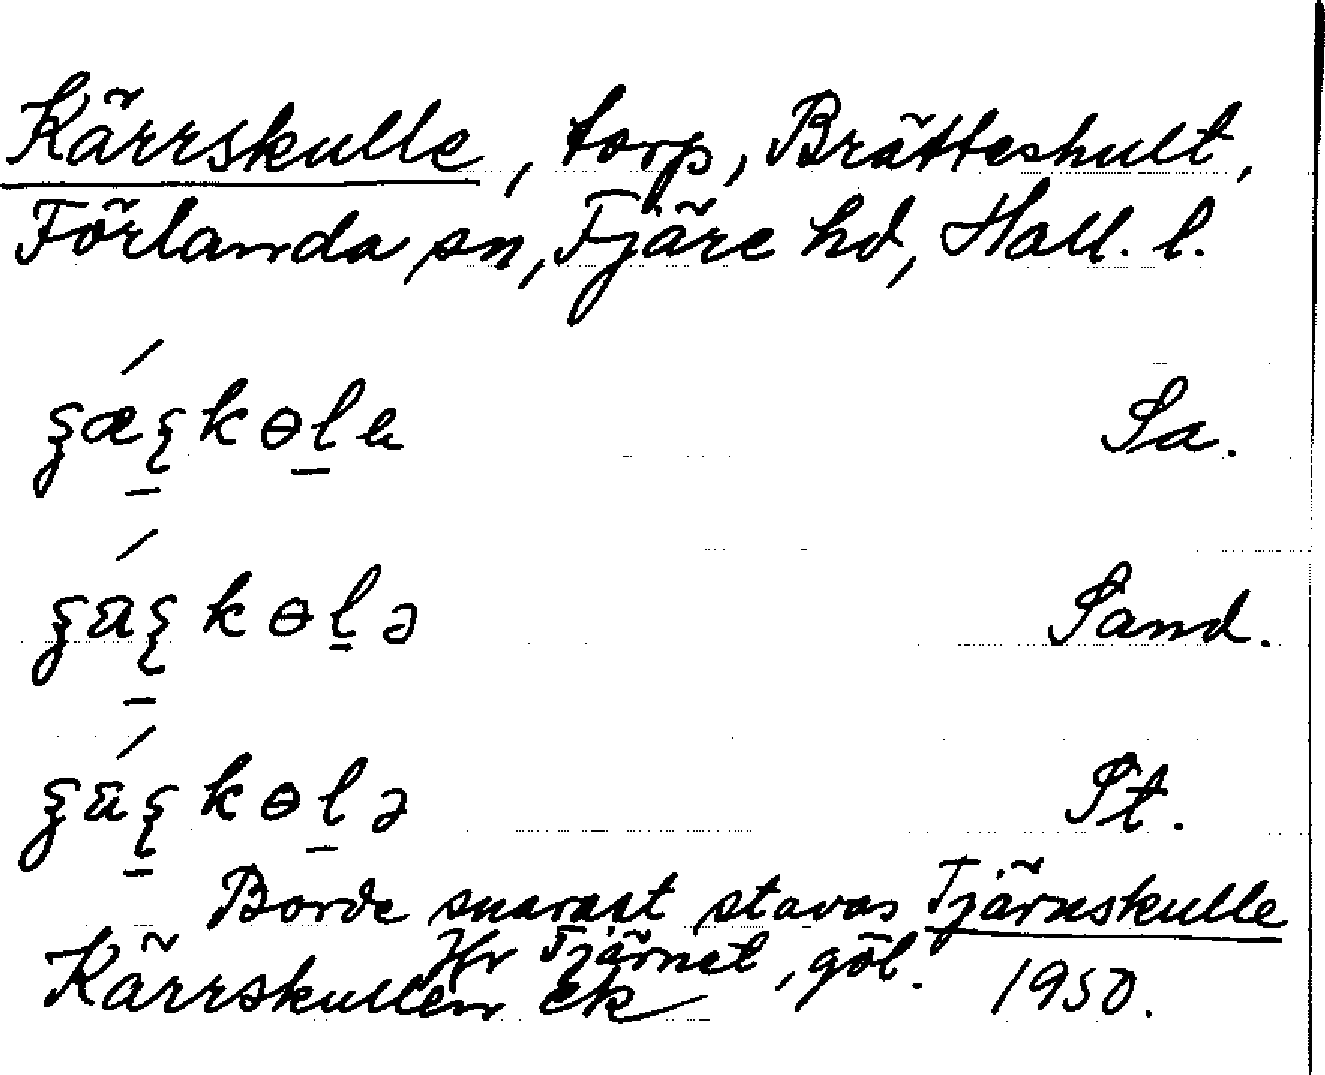 Kärrskulle, torp, Brätteshult,
Förlanda sn, Fjäre hd, Hall. l.
Sa.
Sand.
St.
Borde snarast stavas Tjärnskulle
Hr Tjärnet, göl.
Kärrskullen ek 1950.